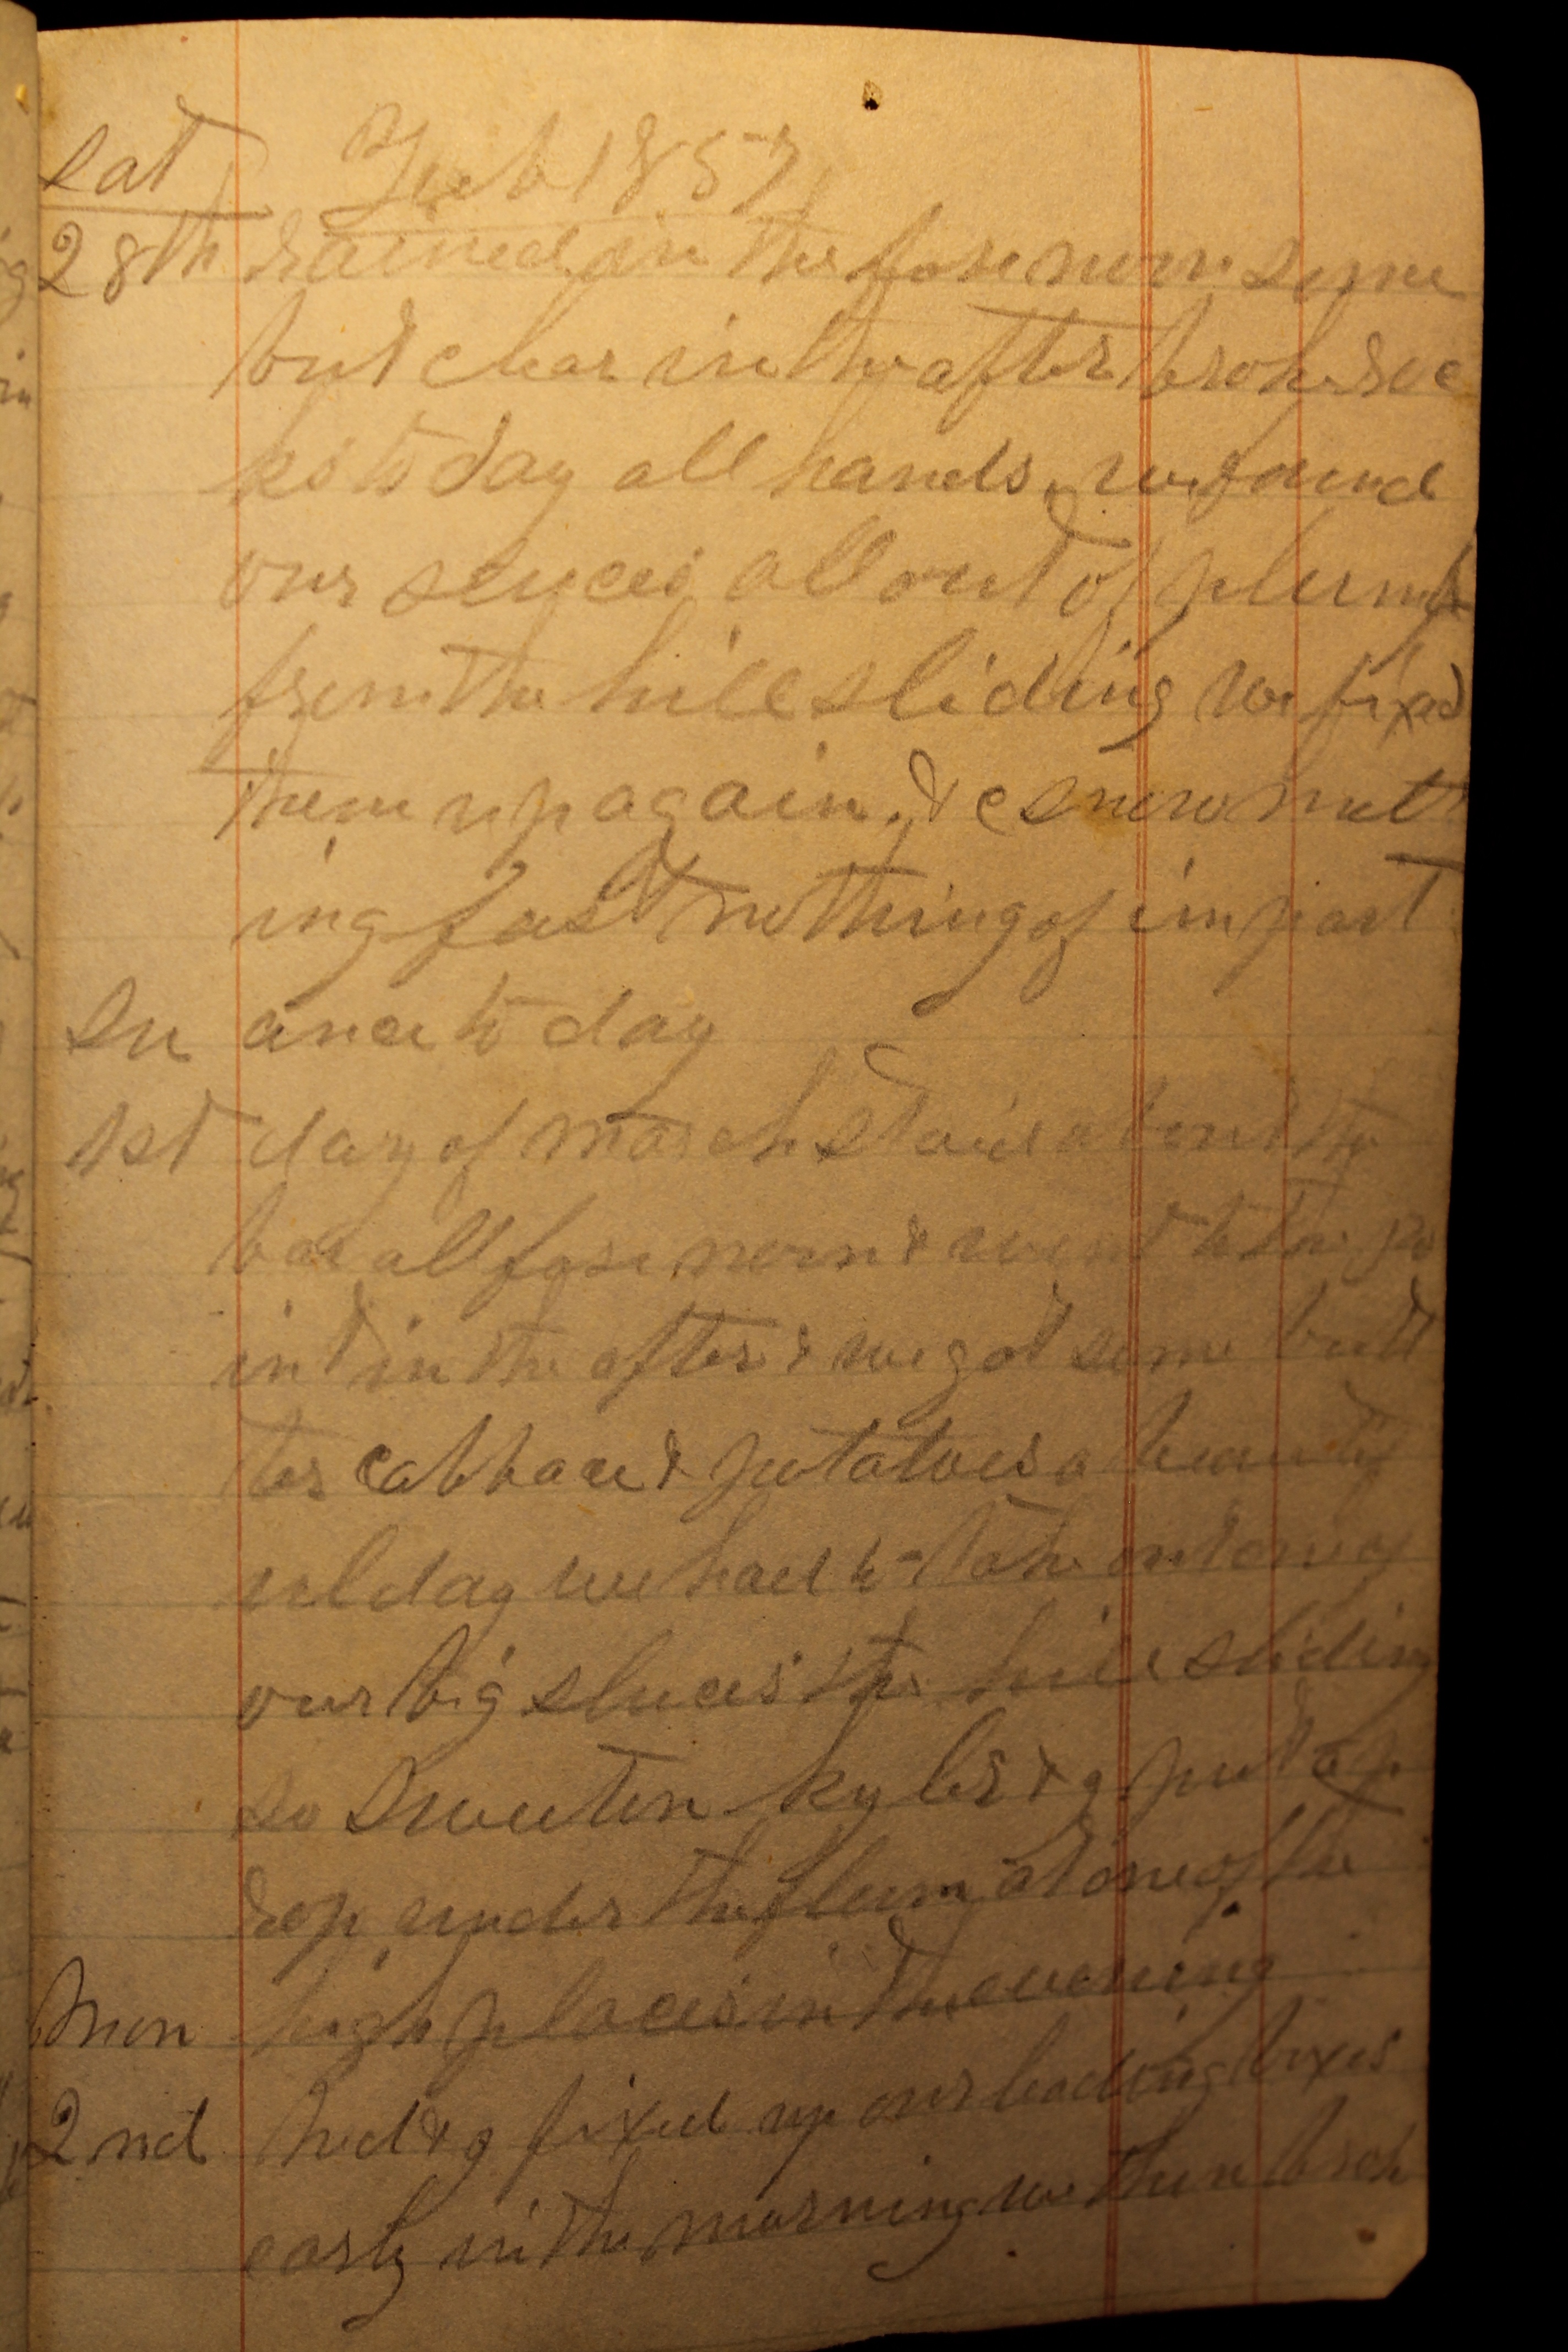 Sat Feb 1857
28th rained in the fore noon some
but clear in the after broke roc
ks to day all hands. we found
our sluces all out of plumb
from the hill sliding we fixed
them up again. & c snow melt
ing fast nothing of import
Su ance to day
1st day of march staid about the
bar all fore noon & went to the po
int in the after & we got some butt
ter cabbage & potatoes a beautif
ul day we had to take out one of
our big sluces the hill sliding
so Sweeten kyler & g put a p
rop under the flum at one of the
Mon high places in the evening
2nd hed & g fixed up our leading boxes
early in the morning we then brok